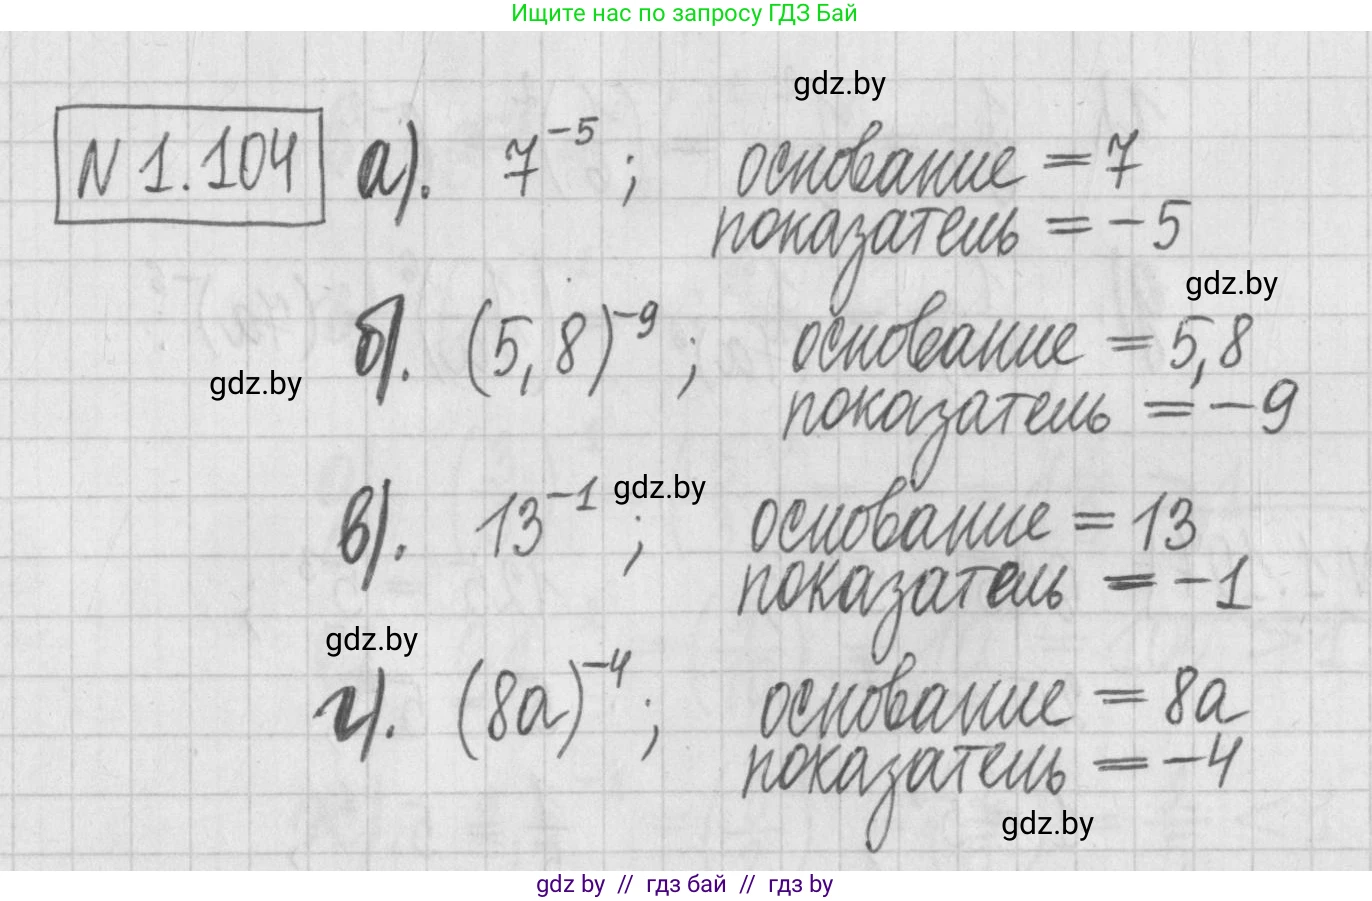 Ищите нас по запросу ГДЗ Бай
gdz.by
N 1.104 а). 7⁻⁵ ; основание = 7
показатель = -5
gdz.by
б). (5,8)⁻⁹ ; основание = 5,8
gdz.by
показатель = -9
в). 13⁻¹ ; gdz.by основание = 13
показатель = -1
gdz.by
г). (8a)⁻⁴ ; основание = 8a
показатель = -4
gdz.by
gdz by // гдз бай // гдз by